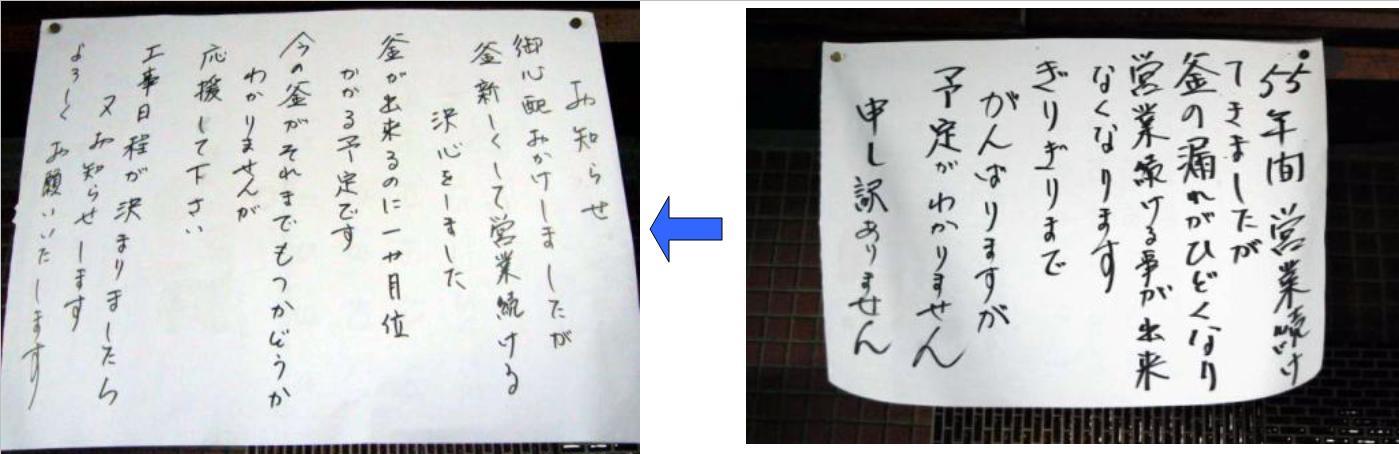 55年間 営業続け
てきましたが
釜の漏れがひどくなり
営業続ける事が出来
なくなります
ぎりぎりまで
がんばりますが
予定がわかりません
申し訳ありません
お知らせ
御心配おかけしましたが
釜新しくして営業続ける
決心をしました
釜が出来るのに一ヶ月位
かかる予定です
今の釜がそれまでもつかどうか
わかりませんが
応援して下さい
工事日程が決まりましたら
又お知らせします
よろしくお願いいたします